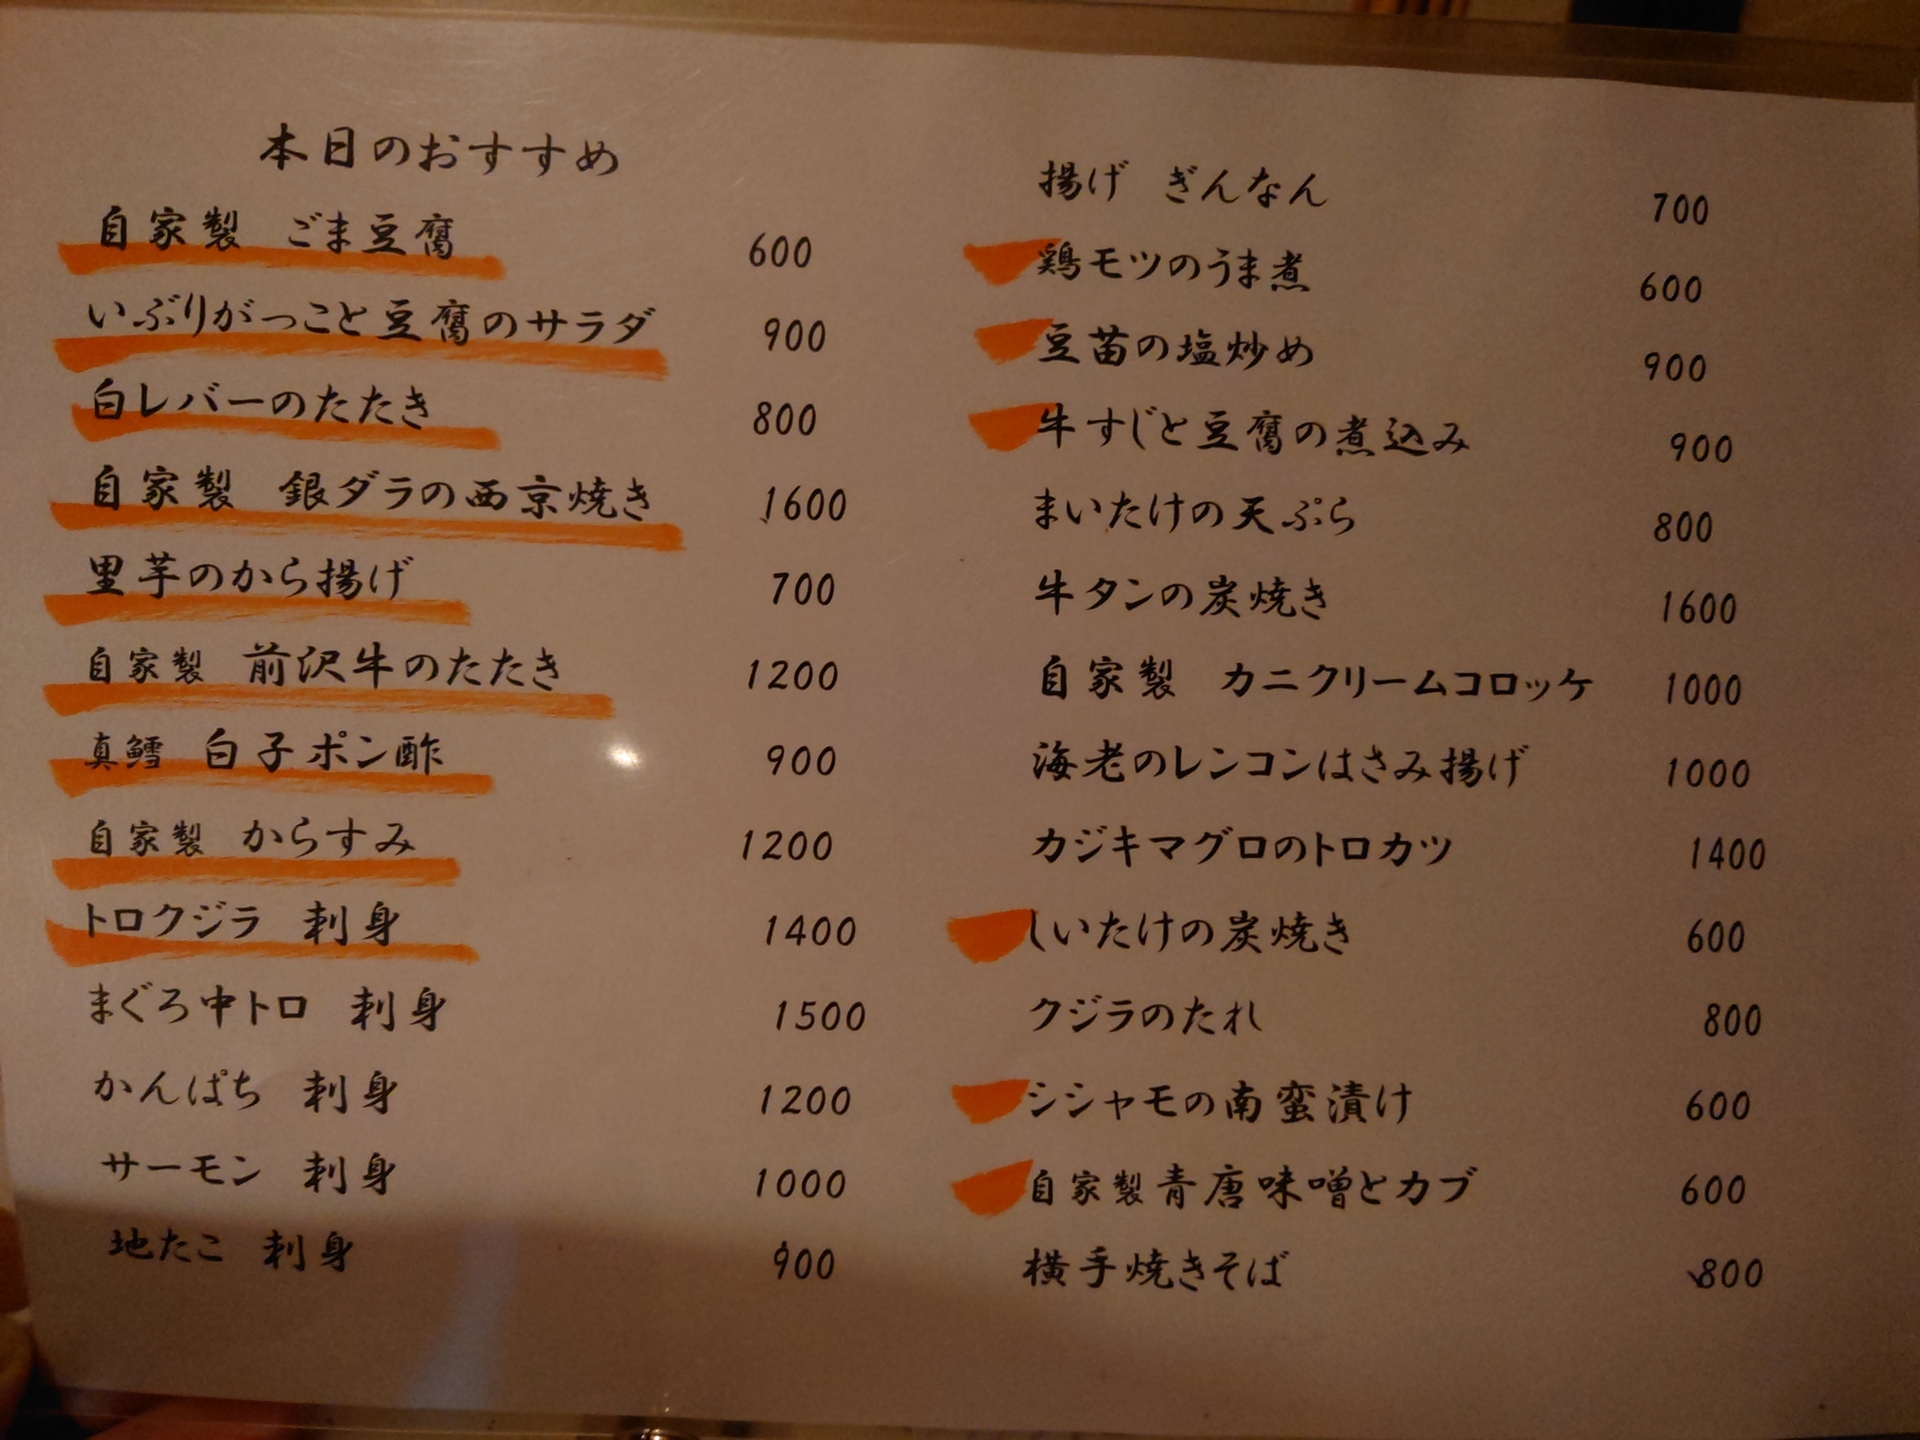 本日のおすすめ
自家製 ごま豆腐 600
いぶりがっこと豆腐のサラダ 900
白レバーのたたき 800
自家製 銀ダラの西京焼き 1600
里芋のから揚げ 700
自家製 前沢牛のたたき 1200
真鱈 白子ポン酢 900
自家製 からすみ 1200
トロクジラ 刺身 1400
まぐろ中トロ 刺身 1500
かんぱち 刺身 1200
サーモン 刺身 1000
地たこ 刺身 900
揚げ ぎんなん 700
鶏モツのうま煮 600
豆苗の塩炒め 900
牛すじと豆腐の煮込み 900
まいたけの天ぷら 800
牛タンの炭焼き 1600
自家製 カニクリームコロッケ 1000
海老のレンコンはさみ揚げ 1000
カジキマグロのトロカツ 1400
しいたけの炭焼き 600
クジラのたれ 800
シシャモの南蛮漬け 600
自家製青唐味噌とカブ 600
横手焼きそば 800